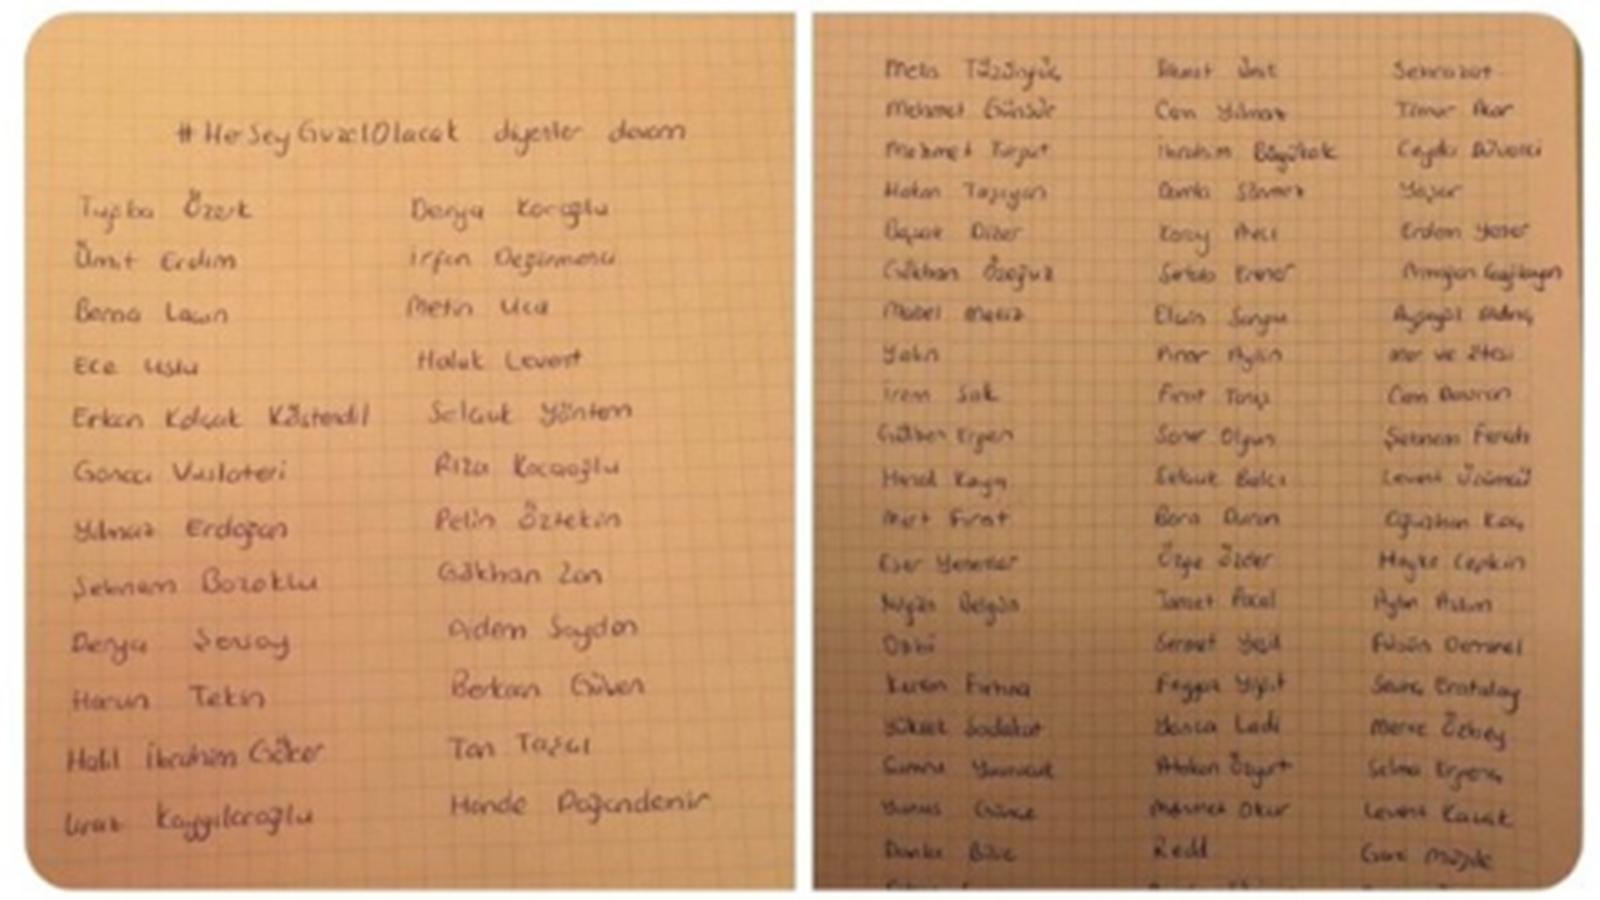 #HerSeyGuzelOlacak diyenler devam
Tuğba Özerk
Ümit Erdim
Berna Laçin
Ece Uslu
Erkan Kolçak Köstendil
Gonca Vuslateri
Yılmaz Erdoğan
Şebnem Bozoklu
Derya Şensoy
Harun Tekin
Halil İbrahim Göker
Uraz Kaygılaroğlu
Derya Köroğlu
İrfan Değirmenci
Metin Uca
Haluk Levent
Selçuk Yöntem
Rıza Kocaoğlu
Pelin Öztekin
Gökhan Zan
Didem Soydan
Berkcan Güven
Tan Taşçı
Hande Doğandemir
Melis Tüzüngüç
Mehmet Günsür
Mehmet Turgut
Hakan Taşıyan
Başak Dizer
Gökhan Özoğuz
Mabel Matiz
Yalın
İrem Sak
Gülben Ergen
Meral Kaya
Mert Fırat
Eser Yenenler
Nilgün Belgün
Kerem Fırtına
Yunus Günce
Ümit
Cem Yılmaz
İbrahim Büyükak
Damla Sönmez
Koray Avcı
Serkan
Elçin Sangu
Pınar Aylin
Fırat Tanış
Soner Olgun
Selçuk Balcı
Bora Duran
Özge Özder
Janset Pacal
Sermet Yeşil
Feyyaz Yiğit
Atakan Özyurt
Mehmet Okur
Redd
Şehrazat
Timur Acar
Ceyda Düvenci
Yaşar
Erdem Yener
Armağan Çağlayan
Ayşegül Aldinç
Mor ve Ötesi
Cem Davran
Şebnem Ferah
Levent Üzümcü
Oğuzhan Koç
Hayko Cepkin
Aylin Aslım
Füsun Demirel
Sevinç Erbulak
Merve Özbey
Selma Ergeç
Levent Kazak
Gani Müjde